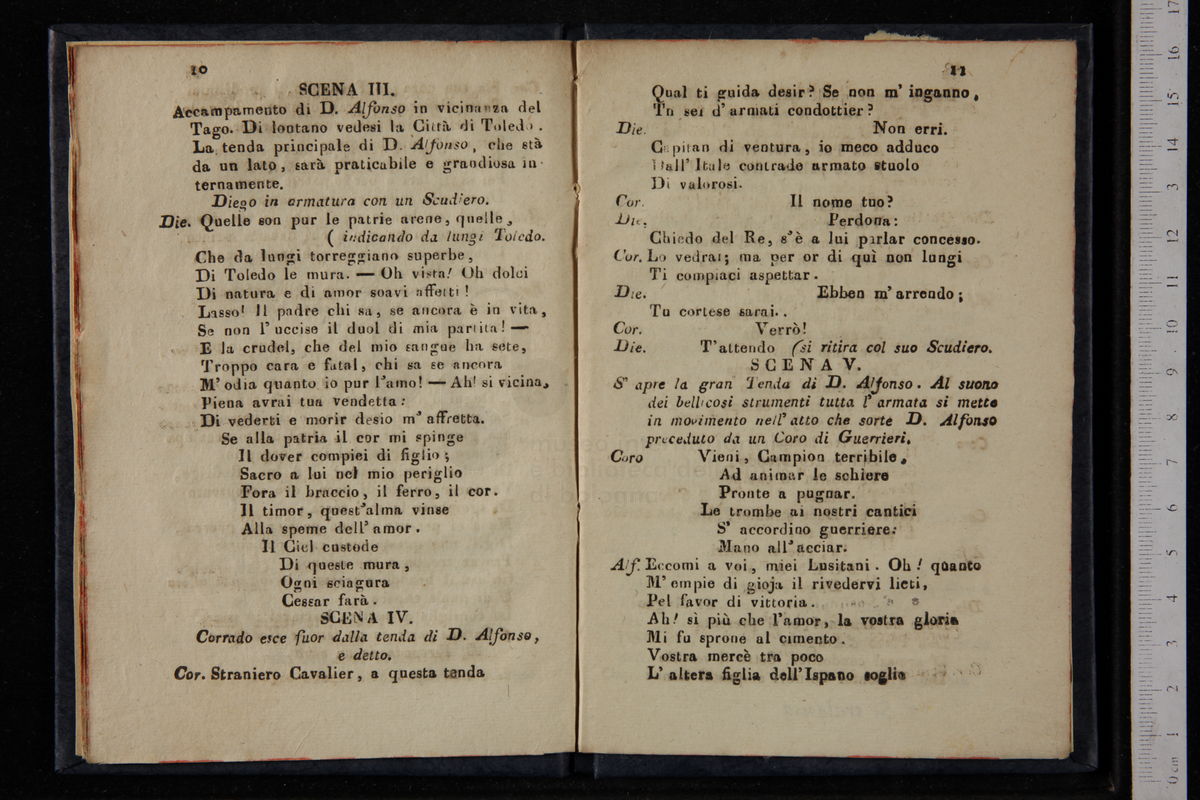 10
SCENA III.
Accampamento di D. Alfonso in vicinanza del
Tago. Di lontano vedesi la Città di Toledo .
La tenda principale di D. Alfonso, che stà
da un lato, sarà praticabile e grandiosa in-
ternamente.
Diego in armatura con un Scudiero.
Die. Quelle son pur le patrie arene, quelle,
( indicando da lungi Toledo.
Che da lungi torreggiano superbe,
Di Toledo le mura. — Oh vista! Oh dolci
Di natura e di amor soavi affetti !
Lasso! Il padre chi sa, se ancora è in vita,
Se non l' uccise il duol di mia partita! —
E la crudel, che del mio sangue ha sete,
Troppo cara e fatal, chi sa se ancora
M' odia quanto io pur l'amo! — Ah! si vicina,
Piena avrai tua vendetta :
Di vederti e morir desio m' affretta.
Se alla patria il cor mi spinge
Il dover compiei di figlio ;
Sacro a lui nel mio periglio
Fora il braccio, il ferro, il cor.
Il timor, quest'alma vinse
Alla speme dell' amor.
Il Ciel custode
Di queste mura,
Ogni sciagura
Cessar farà.
SCENA IV.
Corrado esce fuor dalla tenda di D. Alfonso,
e detto.
Cor. Straniero Cavalier, a questa tenda
11
Qual ti guida desir? Se non m' inganno,
Tu sei d' armati condottier ?
Die. Non erri.
Capitan di ventura, io meco adduco
Dall' Itale contrade armato stuolo
Di valorosi.
Cor. Il nome tuo?
Die. Perdona :
Chiedo del Re, s'è a lui parlar concesso.
Cor. Lo vedrai; ma per or di quì non lungi
Ti compiaci aspettar .
Die. Ebben m' arrendo ;
Tu cortese sarai..
Cor. Verrò!
Die. T'attendo (si ritira col suo Scudiero.
SCENA V.
S' apre la gran Tenda di D. Alfonso. Al suono
dei bellicosi strumenti tutta l' armata si mette
in movimento nell' atto che sorte D. Alfonso
preceduto da un Coro di Guerrieri.
Coro Vieni, Campion terribile,
Ad animar le schiere
Pronte a pugnar.
Le trombe ai nostri cantici
S' accordino guerriere:
Mano all' acciar.
Alf. Eccomi a voi, miei Lusitani . Oh ! quanto
M' empie di gioja il rivedervi lieti,
Pel favor di vittoria.
Ah! sì più che l'amor, la vostra gloria
Mi fu sprone al cimento .
Vostra mercè tra poco
L' altera figlia dell' Ispano soglio